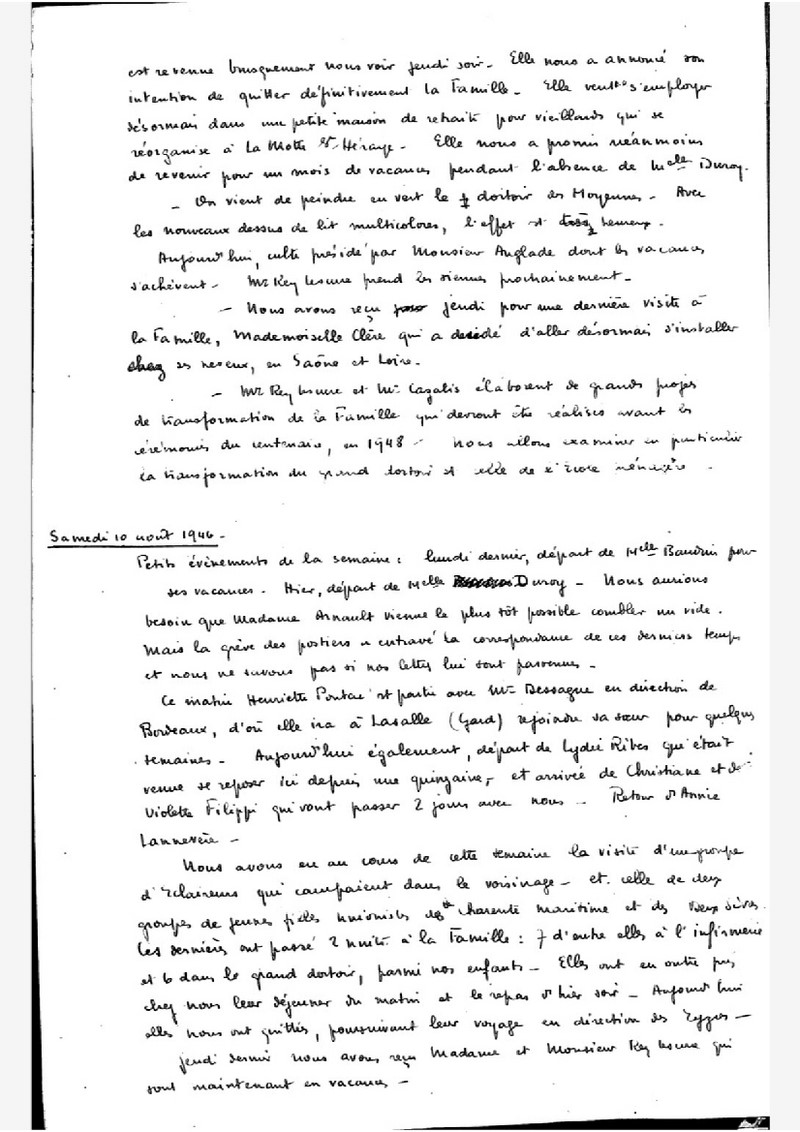 est revenue brusquement nous voir jeudi soir - Elle nous a annoncé son
intention de quitter définitivement la Famille - Elle veut s'employer
désormais dans une petite maison de retraite pour vieillards qui se
réorganise à La Mothe St Héraye - Elle nous a promis néanmoins
de revenir pour un mois de vacances pendant l'absence de Melle Duroy.
- On vient de peindre en vert le dortoir des Moyennes - Avec
les nouveaux dessus de lit multicolores, l'effet est très heureux.
Aujourd'hui, culte présidé par Monsieur Anglade dont les vacances
s'achèvent - Mr Rey Lescure prend les siennes prochainement -
- Nous avons reçu jeudi pour une dernière visite à
la Famille, Mademoiselle Clère qui a décidé d'aller désormais s'installer
chez ses neveux, en Saône et Loire.
- Mr Rey Lescure et Mr Cazalis élaborent de grands projets
de transformation de la Famille qui devront être réalisés avant les
cérémonies du centenaire, en 1948 - Nous allons examiner en particulier
la transformation du grand dortoir et celle de l'Ecole ménagère.
Samedi 10 août 1946 -
Petits évènements de la semaine : lundi dernier, départ de Melle Baudrin pour
ses vacances. Hier, départ de Melle Duroy - Nous aurions
besoin que Madame Arnault vienne le plus tôt possible combler un vide.
Mais la grève des postiers a entravé la correspondance de ces derniers temps
et nous ne savons pas si nos lettres lui sont parvenues -
Ce matin Henriette Pontac est partie avec Mr Bessagne en direction de
Bordeaux, d'où elle ira à Lasalle (Gard) rejoindre sa sœur pour quelques
semaines - Aujourd'hui également, départ de Lydie Ribes qui était
venue se reposer ici depuis une quinzaine, - et arrivée de Christiane et de
Violette Filippi qui vont passer 2 jours avec nous - Retour d'Annie
Lannevère -
Nous avons eu au cours de cette semaine la visite d'un groupe
d'Eclaireurs qui campaient dans le voisinage - et celle de deux
groupes de jeunes filles unionistes de Charente Maritime et des Deux Sèvres.
Ces dernières ont passé 2 nuits à la Famille : 7 d'entre elles à l'infirmerie
et 6 dans le grand dortoir, parmi nos enfants - Elles ont en outre pris
chez nous leur déjeuner du matin et le repas d'hier soir - Aujourd'hui
elles nous ont quittés, poursuivant leur voyage en direction des Eyzies -
Jeudi dernier nous avons reçu Madame et Monsieur Rey Lescure qui
sont maintenant en vacances -